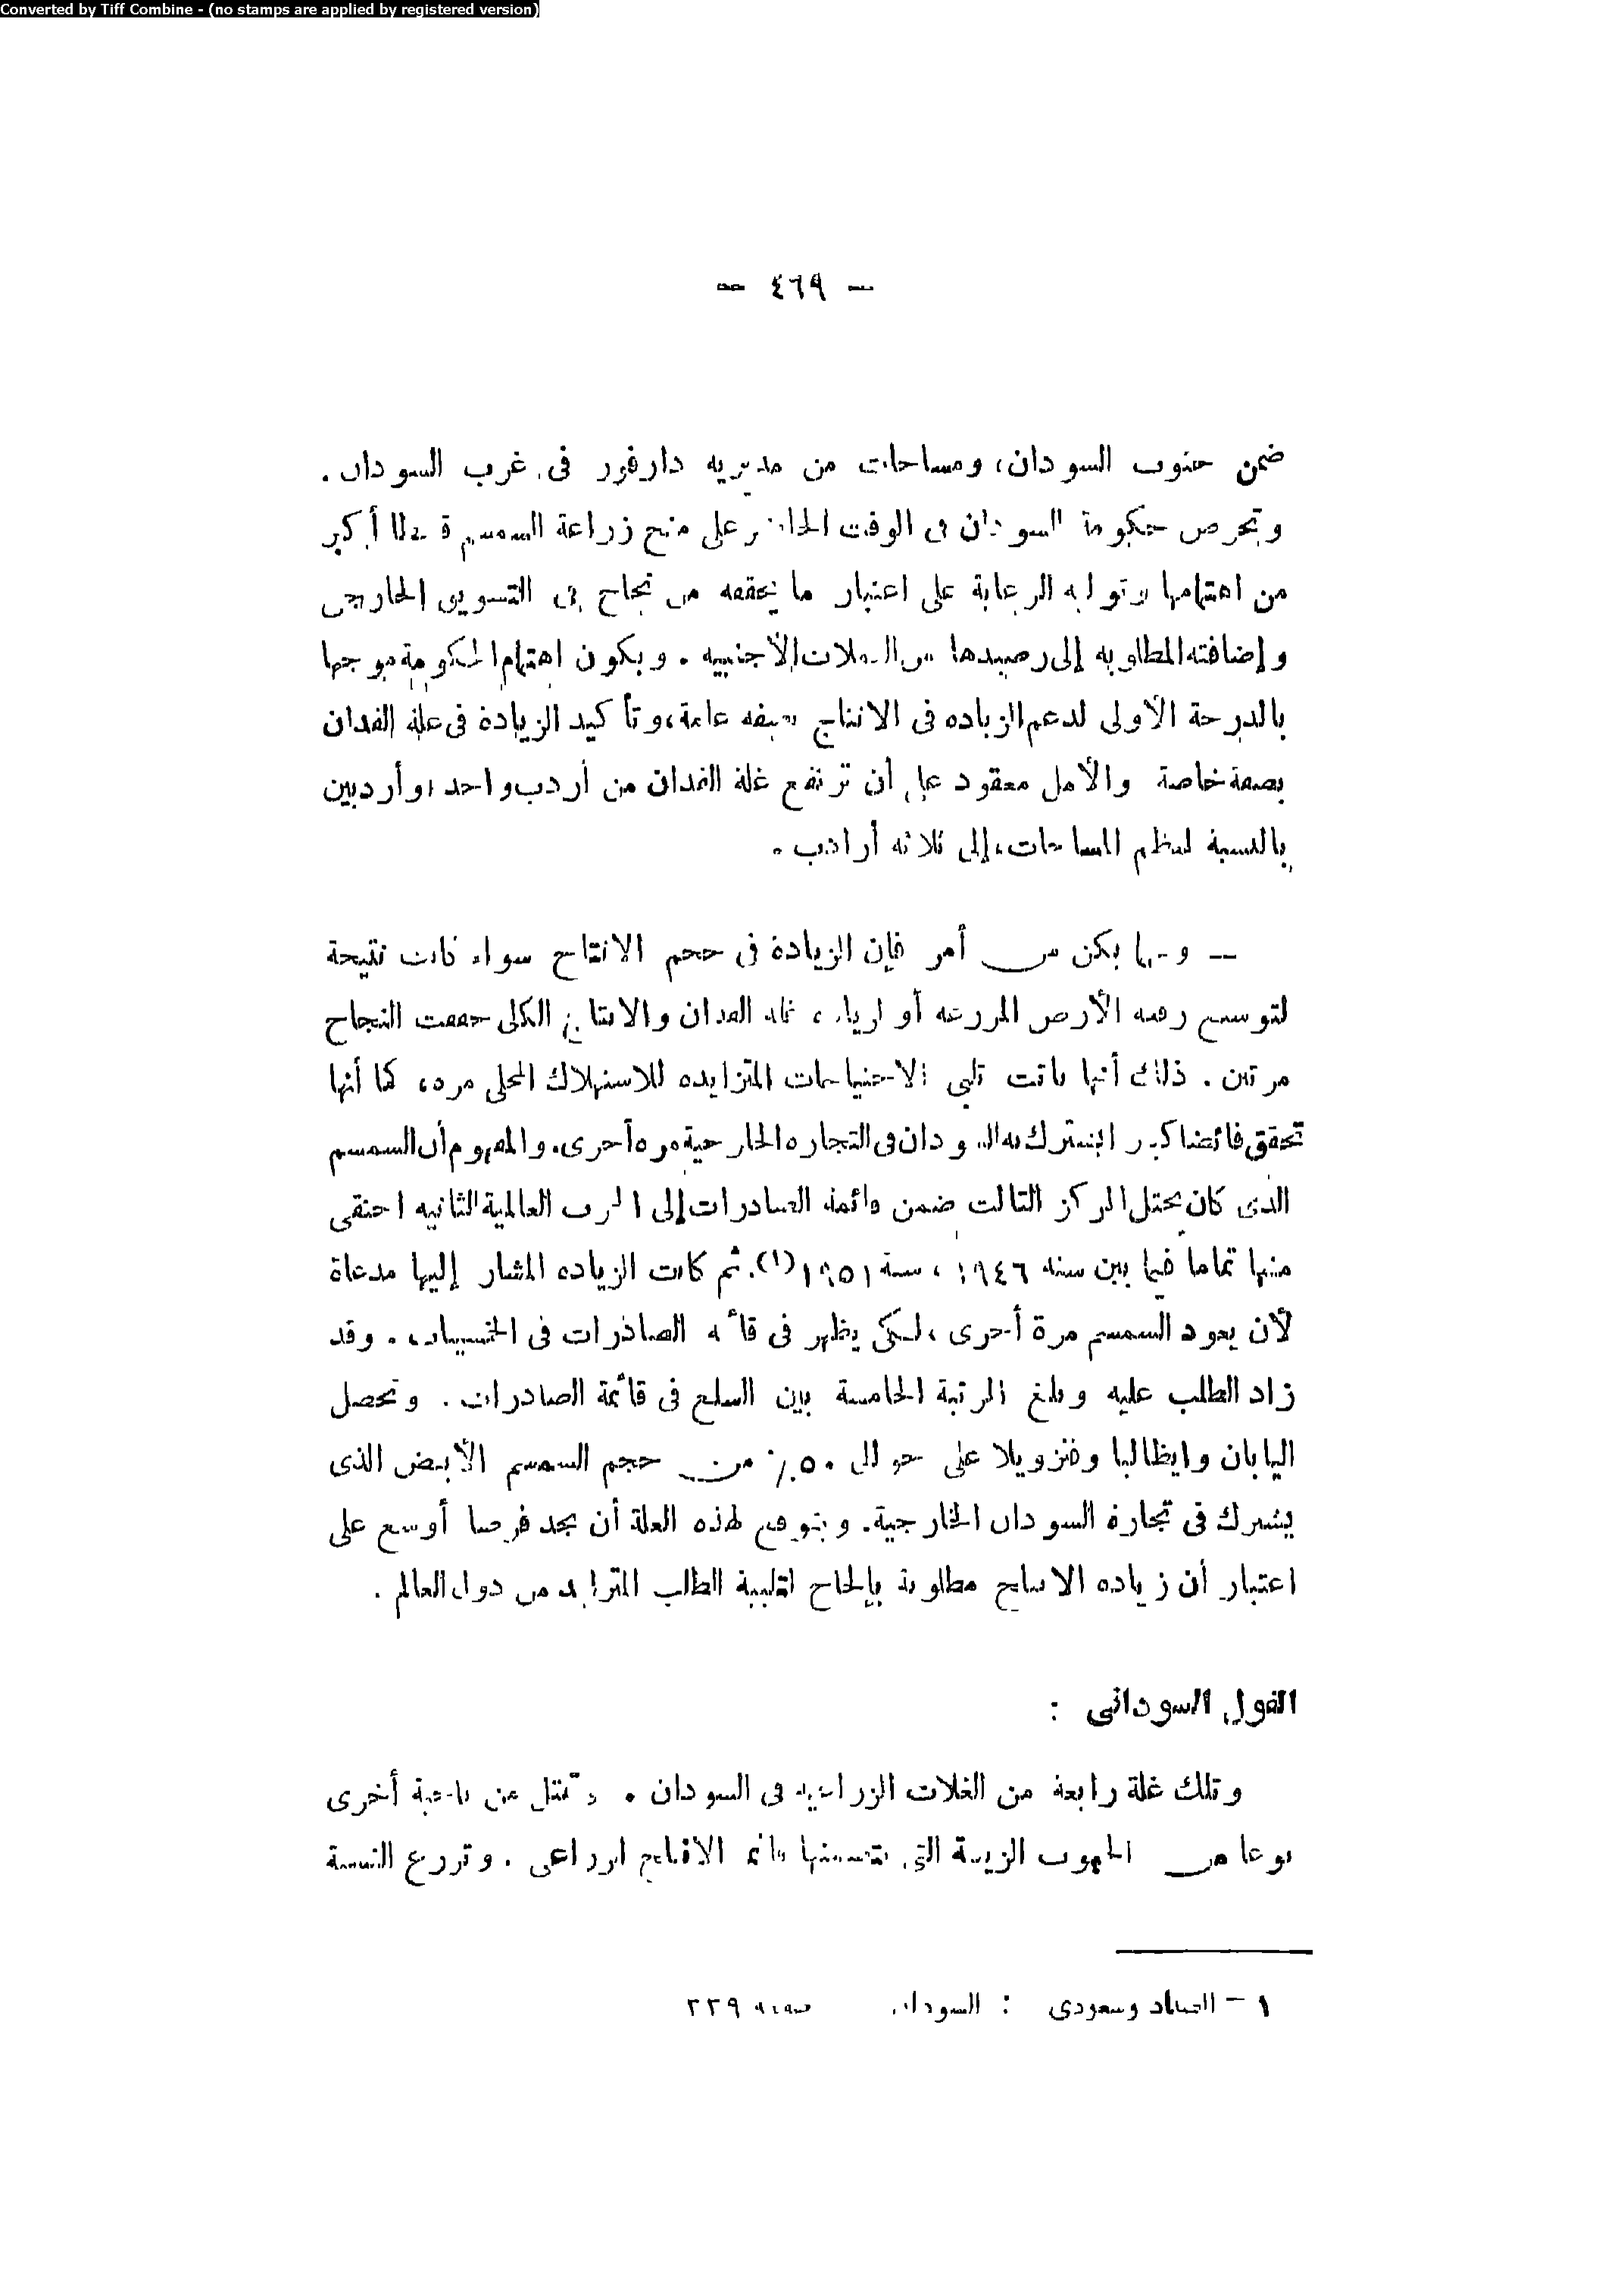 Converted by Tiff Combine - (no stamps are applied by registered version)
— ٤٦٩ —
ضمن جنوب السودان، ومساحات من مديرية دارفور فى غرب السودان .
وتحرص حكومة السودان فى الوقت الحاضر على منح زراعة السمسم قسطا أكبر
من اهتمامها وتوليه الرعاية على اعتبار ما يحققه من نجاح فى التسويق الخارجى
وإضافته المطلوبة إلى رصيدها من العملات الأجنبية . ويكون اهتمام الحكومة موجها
بالدرجة الأولى لدعم الزيادة فى الانتاج بصفة عامة، وتأكيد الزيادة فى غلة الفدان
بصفة خاصة والأمل معقود على أن ترتفع غلة الفدان من أردب واحد، وأردبين
بالنسبة لمعظم المساحات، إلى ثلاثة أرادب .
— ومهما يكن من أمر فإن الزيادة فى حجم الانتاج سواء كانت نتيجة
لتوسيع رقعة الأرض المزرعة أو لزيادة غلة الفدان والانتاج الكلى حققت النجاح
مرتين . ذلك أنها باتت تلبى الاحتياجات المتزايدة للاستهلاك المحلى مرة، كما أنها
تحقق فائضا كبيرا يشترك به السودان فى التجارة الخارجية مرة أخرى. والمفهوم أن السمسم
الذى كان يحتل المركز الثالث ضمن قائمة الصادرات إلى الحرب العالمية الثانية اختفى
منها تماما فيما بين سنة ١٩٤٦ ، سنة ١٩٥١(١). ثم كانت الزيادة المشار إليها مدعاة
لأن يعود السمسم مرة أخرى ، لكى يظهر فى قائمة الصادرات فى الخمسينات . وقد
زاد الطلب عليه وبلغ المرتبة الخامسة بين السلع فى قائمة الصادرات . وتحصل
اليابان وايطاليا وفنزويلا على حوالى ٥٠٪ من حجم السمسم الأبيض الذى
يشترك فى تجارة السودان الخارجية. ويتوقع لهذه الغلة أن تجد فرصا أوسع على
اعتبار أن زيادة الانتاج مطلوبة بإلحاح لتلبية الطلب المتزايد من دول العالم .
الفول السودانى :
وتلك غلة رابعة من الغلات الزراعية فى السودان . وتمثل من ناحية أخرى
نوعا من الحبوب الزيتية التى تتضمنها قائمة الانتاج الزراعى . وتزرع النسبة
١ — الصياد وسعودى : السودان صفحة ٢٢٩